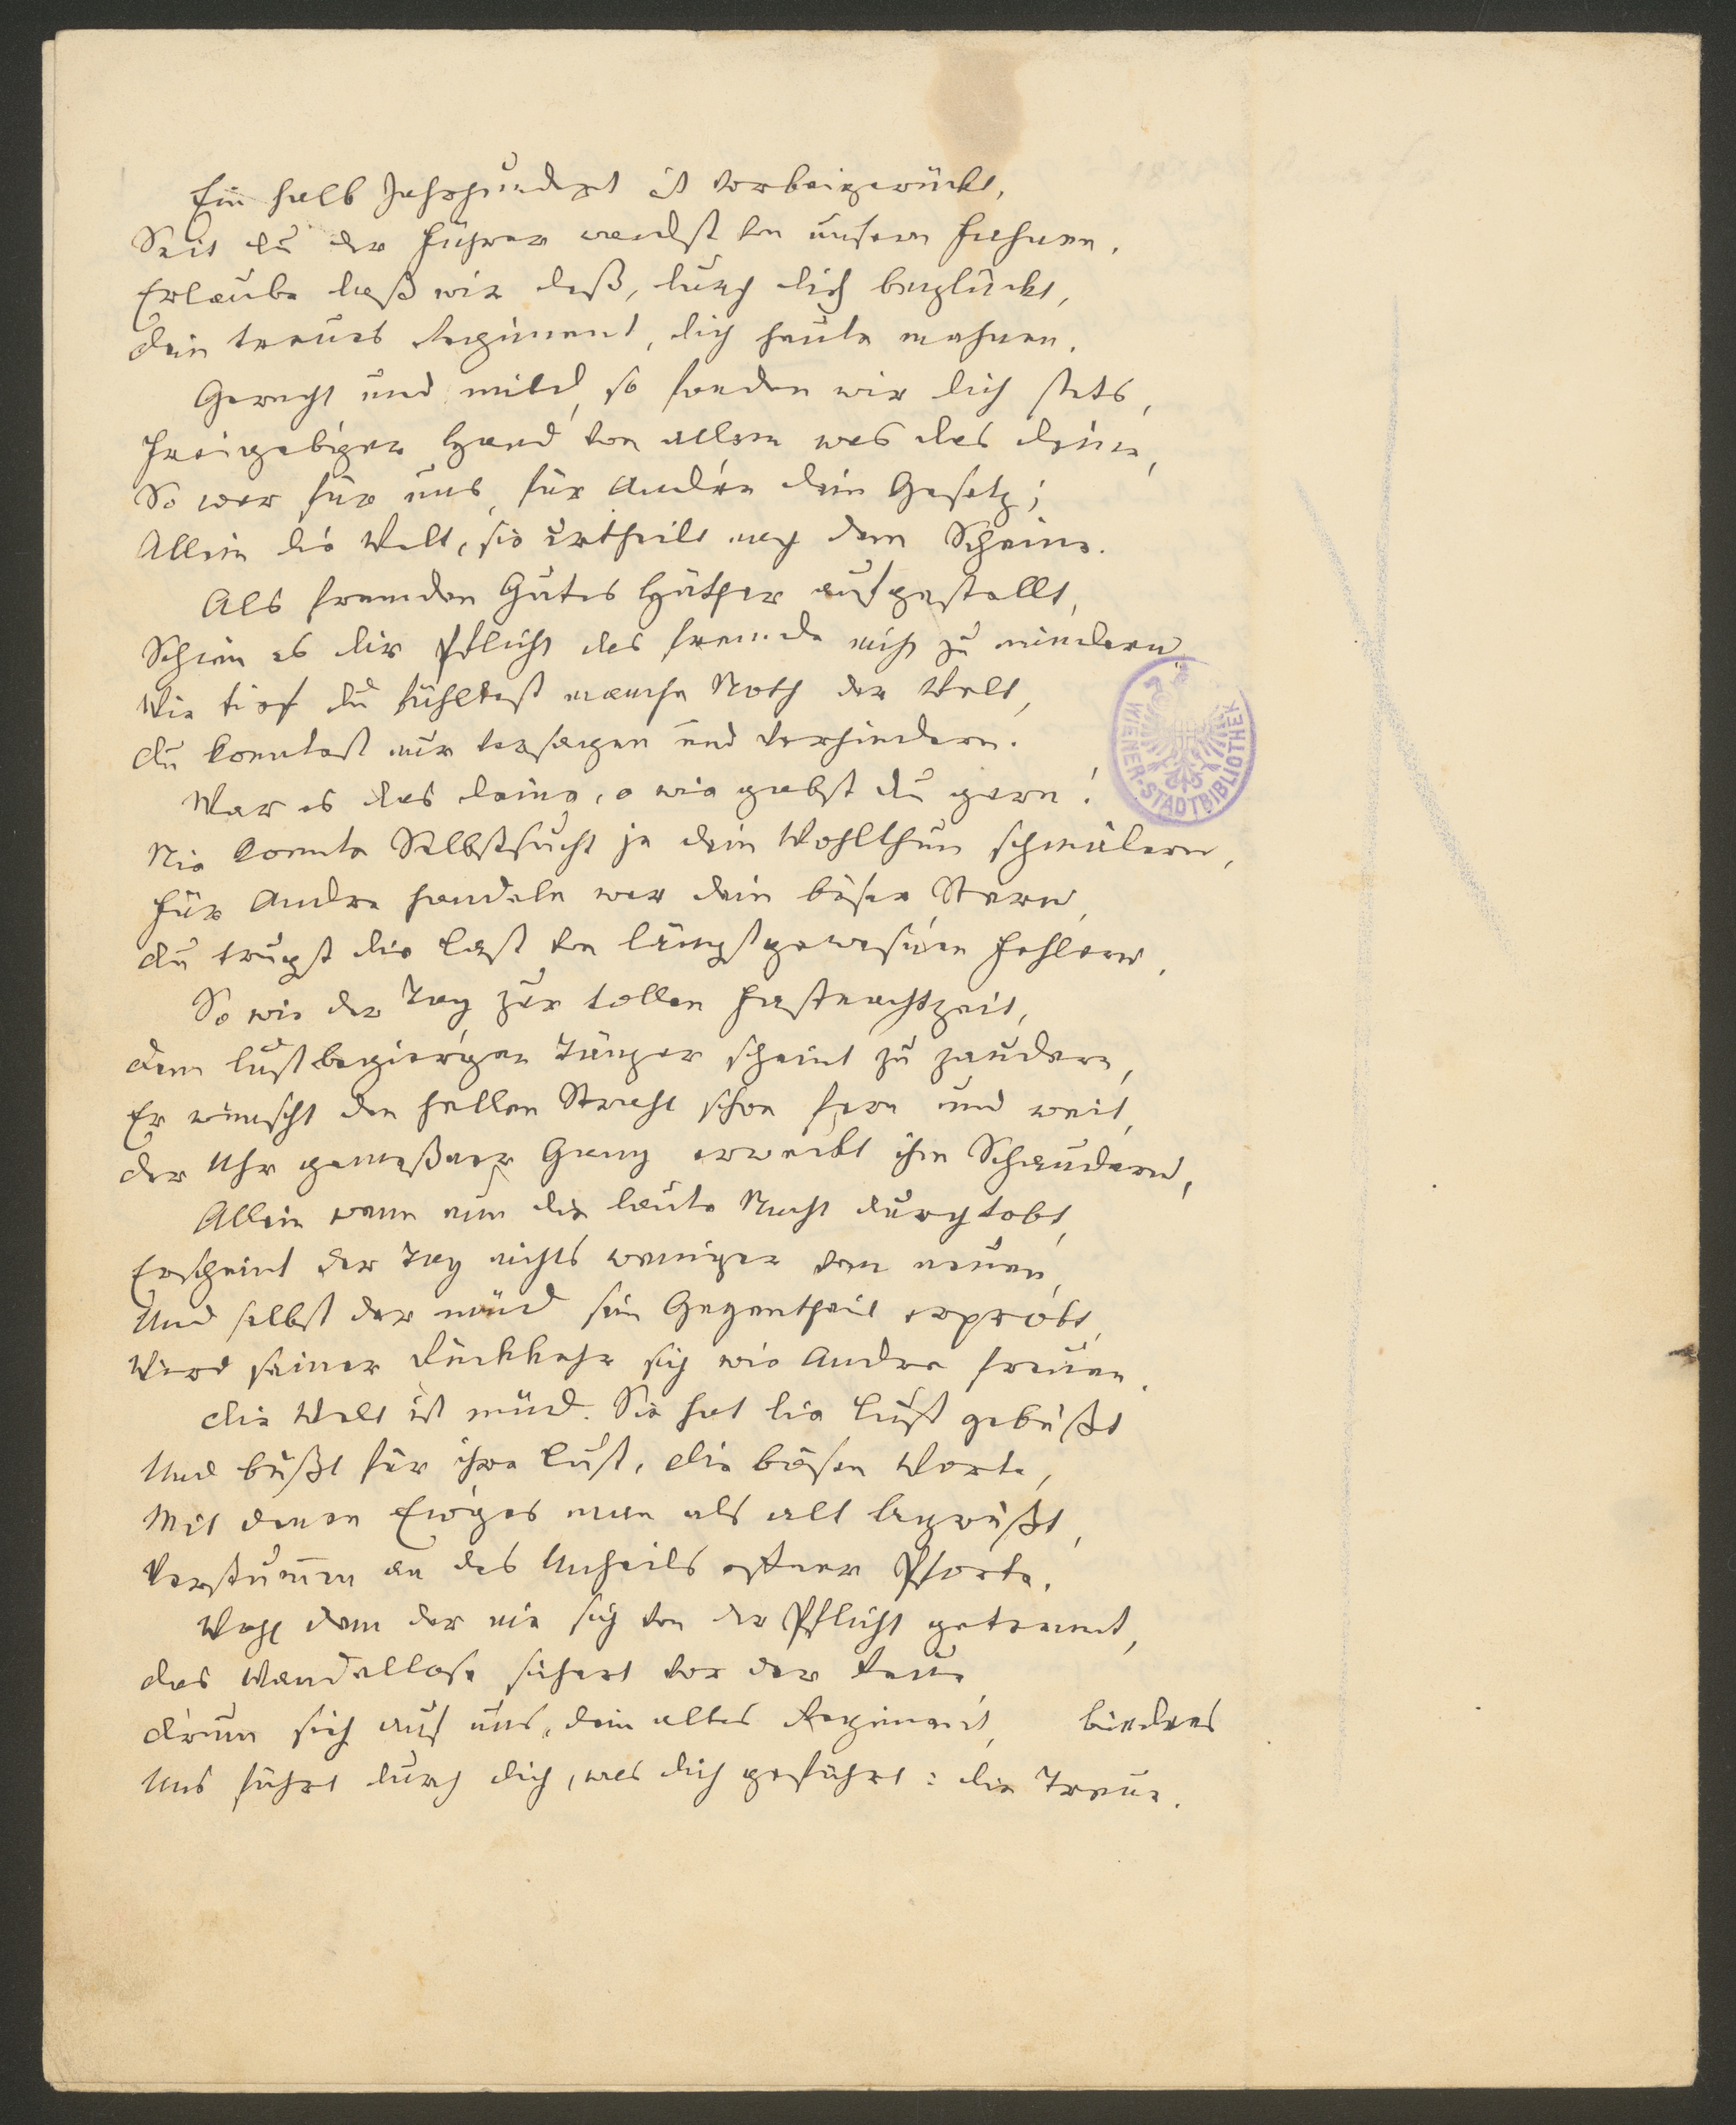 Ein halb Jahrhundert ist vorbeigerückt,
Seit du der Führer wardst von unsern Fahnen.
Erlaube daß wir daß, durch dich beglückt,
Dein treues Regiment, dich heute mahnen.
Gerecht und mild, so fanden wir dich stets,
Freigebiger Hand von allem was das deine,
So war für uns, für Andre dein Gesetz;
Allein die Welt, sie urtheilt nach dem Scheine.
Als fremden Gutes Hüther aufgestellt,
Schien es dir Pflicht das fremde nicht zu mindern,
Wie tief du fühltest manche Noth der Welt,
Du konntest nur versagen und verhindern.
War es das deine, o wie gabst du gern!
Nie konnte Selbstsucht je dein Wohlthun schmälern,
Für Andre handeln war dein böser Stern,
Du trugst die Last von längstgewesnen Fehlern.
So wie der Tag zur tollen Fastnachtzeit,
Dem lustbegierigen Tänzer scheint zu zaudern,
Er wünscht den hellen Strahl schon fern und weit,
Der Uhr gemeßner Gang erweckt ihm Schaudern,
Allein wenn nun die laute Nacht durchtobt,
Erscheint der Tag nichts weniger dem neuen,
Und selbst der müd sein Gegentheil erprobt,
Wird seiner Rückkehr sich wie Andre freuen.
Die Welt ist müd. Sie hat die Lust gebüßt
Und büßt für ihre Lust, die bösen Worte,
Mit denen Ewiges man als alt begrüßt,
Verstummen an des Unheils offner Pforte.
Wohl dem der nie sich von der Pflicht getrennt,
Das Wandellose sichert vor der Reue,
Drum sieh auf uns, dein altes Regiment, biedres
Uns führt durch dich, was dich geführt: die Treue.
WIENER-STADTBIBLIOTHEK